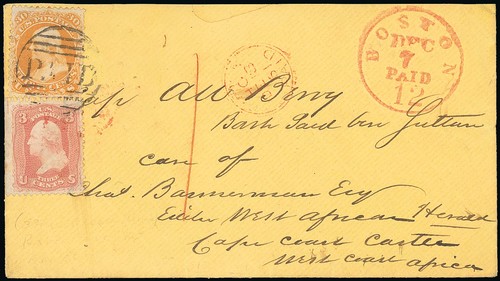 30 U.S. POSTAGE 30
PAID
BOSTON
DEC
7
PAID
12
LONDON
PAID
Cap All Berry
Bark Said ben Sultan
care of
Chas. Bannerman Esq
Editor West African Herald
Cape coast Castle
West coast Africa
3 3
U S
THREE
CENTS